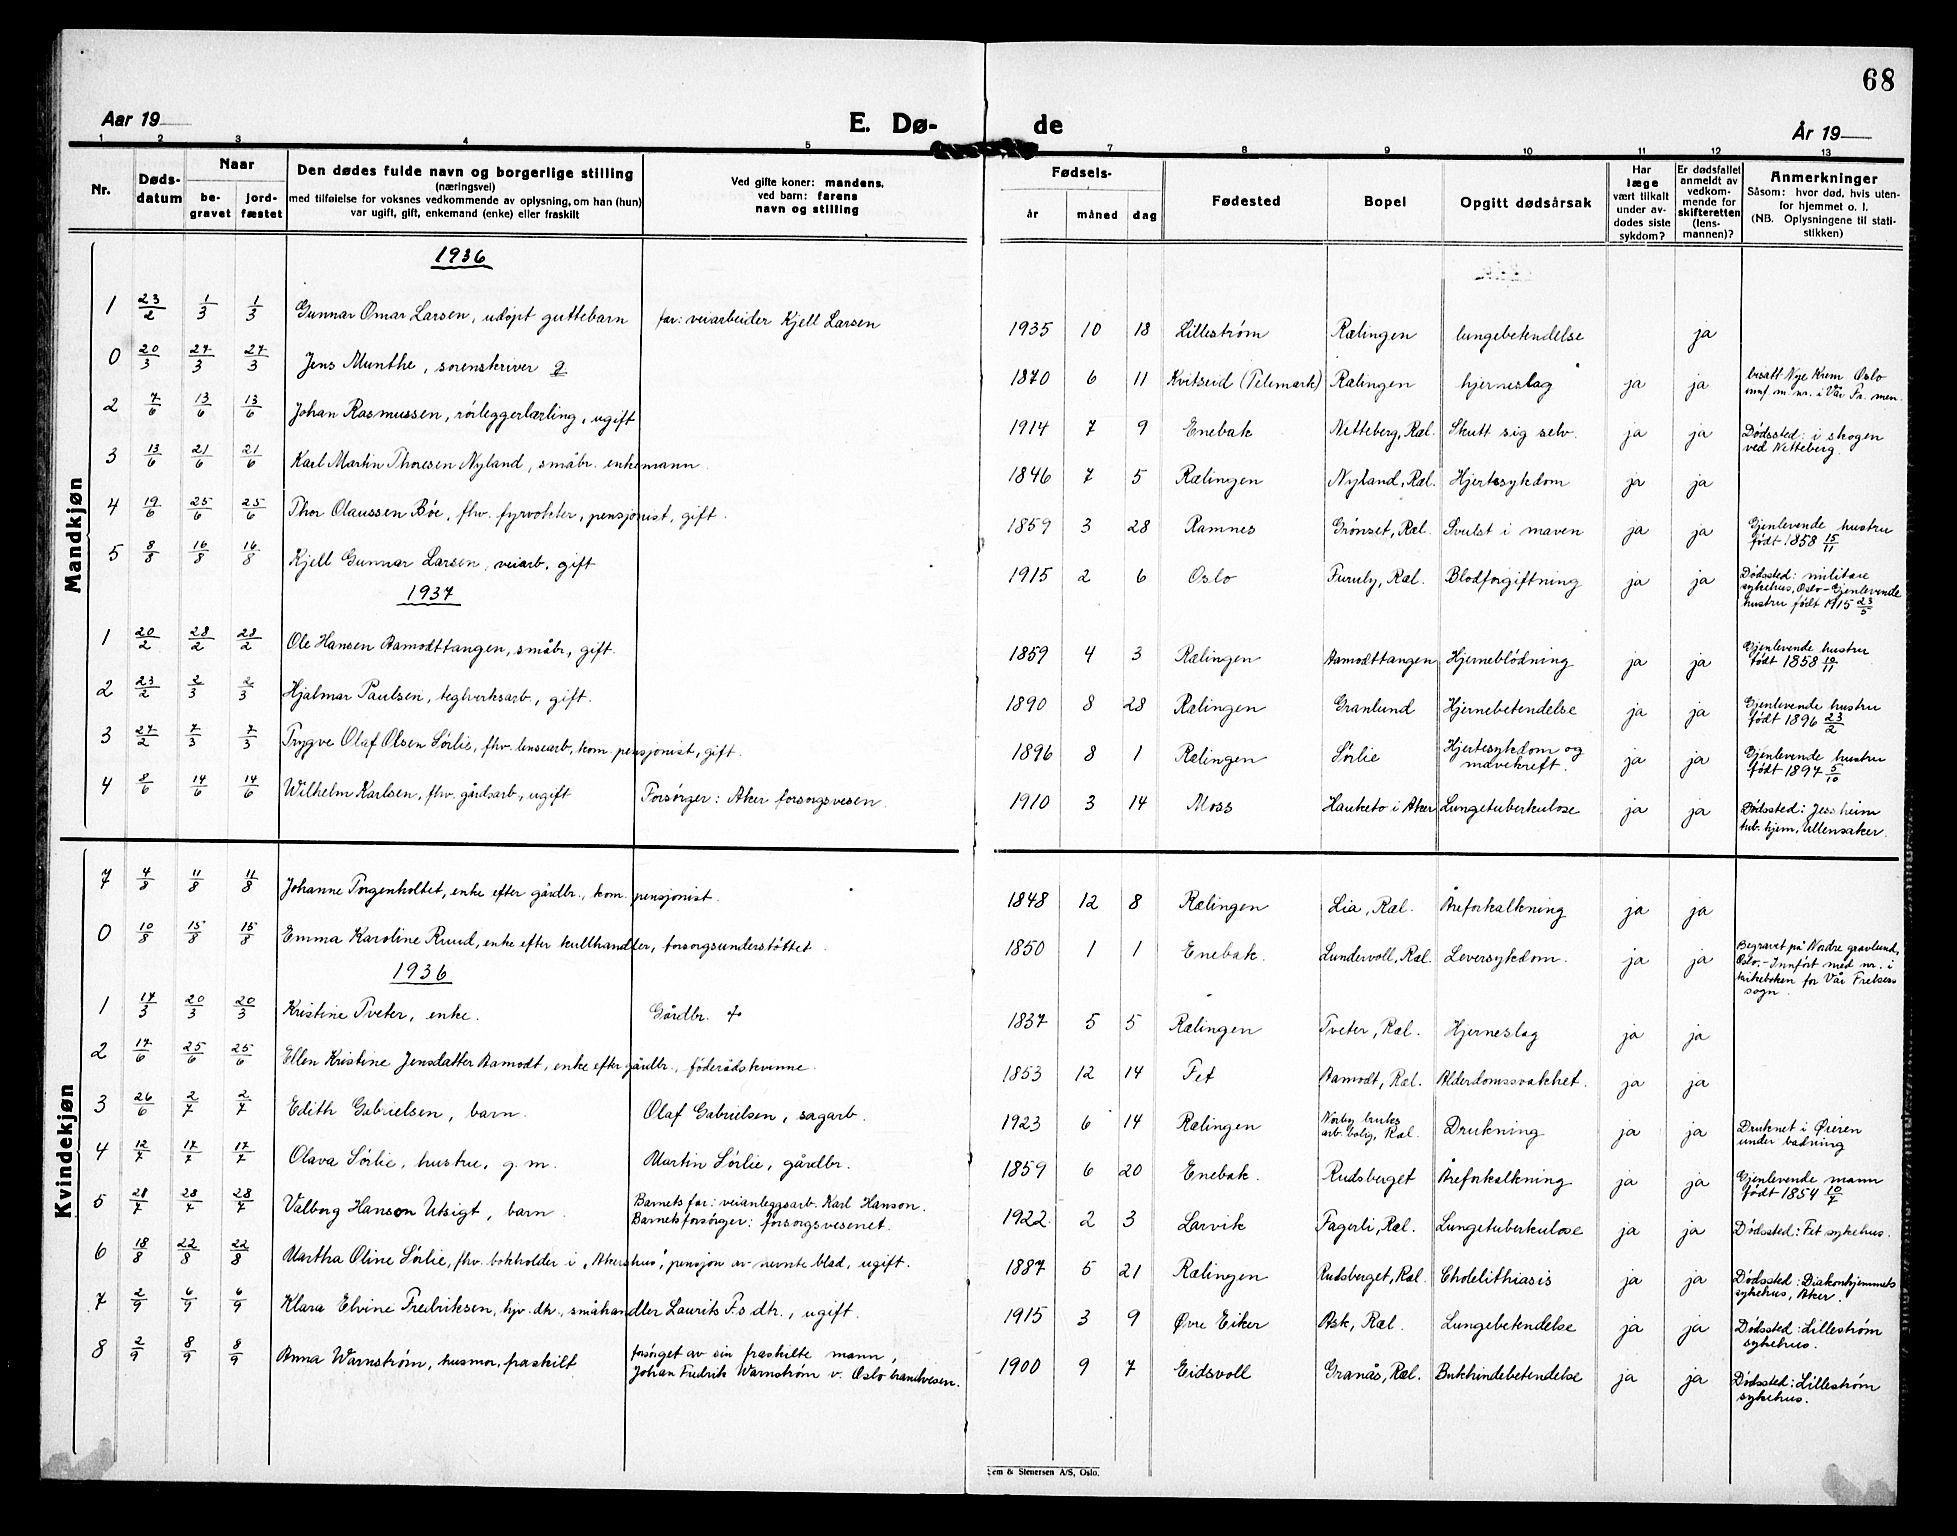 68
Aar 19
E. Dø-
de
År 19
1 2 3 4 5 7 8 9 10 11 12 13
Nr. | Døds-datum | Naar be-gravet | jord-fæstet | Den dødes fulde navn og borgerlige stilling (næringsvei) med tilføielse for voksnes vedkommende av oplysning, om han (hun) var ugift, gift, enkemand (enke) eller fraskilt | Ved gifte koner: mandens, ved barn: farens navn og stilling | Fødsels- år | måned | dag | Fødested | Bopel | Opgitt dødsårsak | Har læge vært tilkalt under av-dødes siste sykdom? | Er dødsfallet anmeldt av vedkom-mende for skifteretten (lens-mannen)? | Anmerkninger Såsom: hvor død, hvis uten-for hjemmet o. l. (NB. Oplysningene til stati-stikken)
Mandkjøn
1936
1 23/2 1/3 1/3 Gunnar Omar Larsen, udøpt guttebarn far: veiarbeider Kjell Larsen 1935 10 18 Lillestrøm Rælingen lungebetendelse ja
0 20/3 24/3 24/3 Jens Munthe, sorenskriver g 1870 6 11 Kvitseid (Telemark) Rælingen hjerneslag ja ja besatt Nye Krem Oslo innf. m. nr. i Vår Fr. men.
2 7/6 13/6 13/6 Johan Rasmussen, rørleggerlærling, ugift 1914 7 9 Enebak Nitteberg, Ræl. Skutt sig selv. ja ja Dødssted: i skogen ved Nitteberg.
3 13/6 21/6 21/6 Karl Martin Thoresen Nyland, småbr. enkemann. 1846 7 5 Rælingen Nyland, Ræl. Hjertesykdom ja ja
4 19/6 25/6 25/6 Thor Olaussen Bøe, fhv. fyrvokter, pensjonist, gift. 1859 3 28 Ramnes Grønset, Ræl. Svulst i maven ja ja Gjenlevende hustru født 1858 15/11
5 8/8 16/8 16/8 Kjell Gunnar Larsen, veiarb, gift 1915 2 6 Oslo Furuly, Ræl. Blodforgiftning ja ja Dødssted: militære sykehus, Oslo - Gjenlevende hustru født 1915 23/5
1937
1 20/2 28/2 28/2 Ole Hansen Aamodttangen, småbr, gift. 1859 4 3 Rælingen Aamodttangen Hjerneblødning ja ja Gjenlevende hustru født 1858 10/11
2 23/2 2/3 2/3 Hjalmar Paulsen, teglverksarb., gift. 1890 8 28 Rælingen Granlund Hjernebetendelse ja ja Gjenlevende hustru født 1896 23/2
3 27/2 7/3 7/3 Trygve Olaf Olsen Sørlie, fhv. lensearb, kom. pensjonist, gift. 1896 8 1 Rælingen Sørlie Hjertesykdom og mavekreft. ja ja Gjenlevende hustru født 1897 5/10
4 8/6 14/6 14/6 Wilhelm Karlsen, fhv. gårdsarb, ugift Forsørger: Aker forsorgsvesen. 1910 3 14 Moss Hauketo i Aker Lungetuberkulose ja ja Dødssted: Jessheim tub. hjem, Ullensaker.
Kvindekjøn
7 4/8 11/8 11/8 Johanne Torgenholtet, enke efter gårdbr., kom. pensjonist. 1848 12 8 Rælingen Lia, Ræl. Åreforkalkning ja ja
0 10/8 15/8 15/8 Emma Karoline Ruud, enke efter kullhandler, forsorgsunderstøttet. 1850 1 1 Enebak. Lundervoll, Ræl. Leversykdom. ja ja Begravet på Nordre gravlund, Oslo. - Innført med nr. i kirkeboken for Vår Frelsers sogn.
1936
1 17/3 20/3 20/3 Kristine Tveter, enke. Gårdbr. 1837 5 5 Rælingen Tveter, Ræl. Hjerneslag ja ja
2 17/6 25/6 25/6 Ellen Kristine Jensdatter Aamodt, enke efter gårdbr., føderådskvinne. 1853 12 14 Fet Aamodt, Ræl. Alderdomssvakhet. ja ja
3 26/6 2/7 2/7 Edith Gabrielsen, barn. Olaf Gabrielsen, sagarb. 1923 6 14 Rælingen Norby bruks arb. bolig, Ræl. Drukning ja ja Druknet i Øieren under badning
4 12/7 17/7 17/7 Olava Sørlie, hustru, g. m. Martin Sørlie, gårdbr. 1859 6 20 Enebak. Rudsberget Åreforkalkning ja ja Gjenlevende mann født 1854 10/7
5 21/7 28/7 28/7 Valborg Hanson Utsigt, barn. Barnets far: veianleggsarb. Karl Hanson. Barnets forsørger: forsorgsvesenet. 1922 2 3 Larvik Fagerli, Ræl. Lungetuberkulose ja ja Dødssted: Fet sykehus.
6 18/8 22/8 22/8 Martha Oline Sørlie, fhv. bokholder i „Akershus“, pensjon av nevnte blad, ugift. 1887 5 21 Rælingen Rudsberget, Ræl. Cholelithiasis ja ja Dødssted: Diakonhjemmets sykehus, Aker.
7 2/9 6/9 6/9 Klara Elvine Fredriksen, hjv. dtr., småhandler Laurits F.s dtr., ugift. 1915 3 9 Øvre Eiker Ask, Ræl. Lungebetendelse ja ja Dødssted: Lillestrøm sykehus.
8 2/9 8/9 8/9 Anna Warnstrøm, husmor, fraskilt forsørget av sin fraskilte mann, Johan Fredrik Warnstrøm v. Oslo brandvesen. 1900 9 7 Eidsvoll Granås, Ræl. Bukhindebetendelse ja ja Dødssted: Lillestrøm sykehus.
em & Stenersen A/S, Oslo.